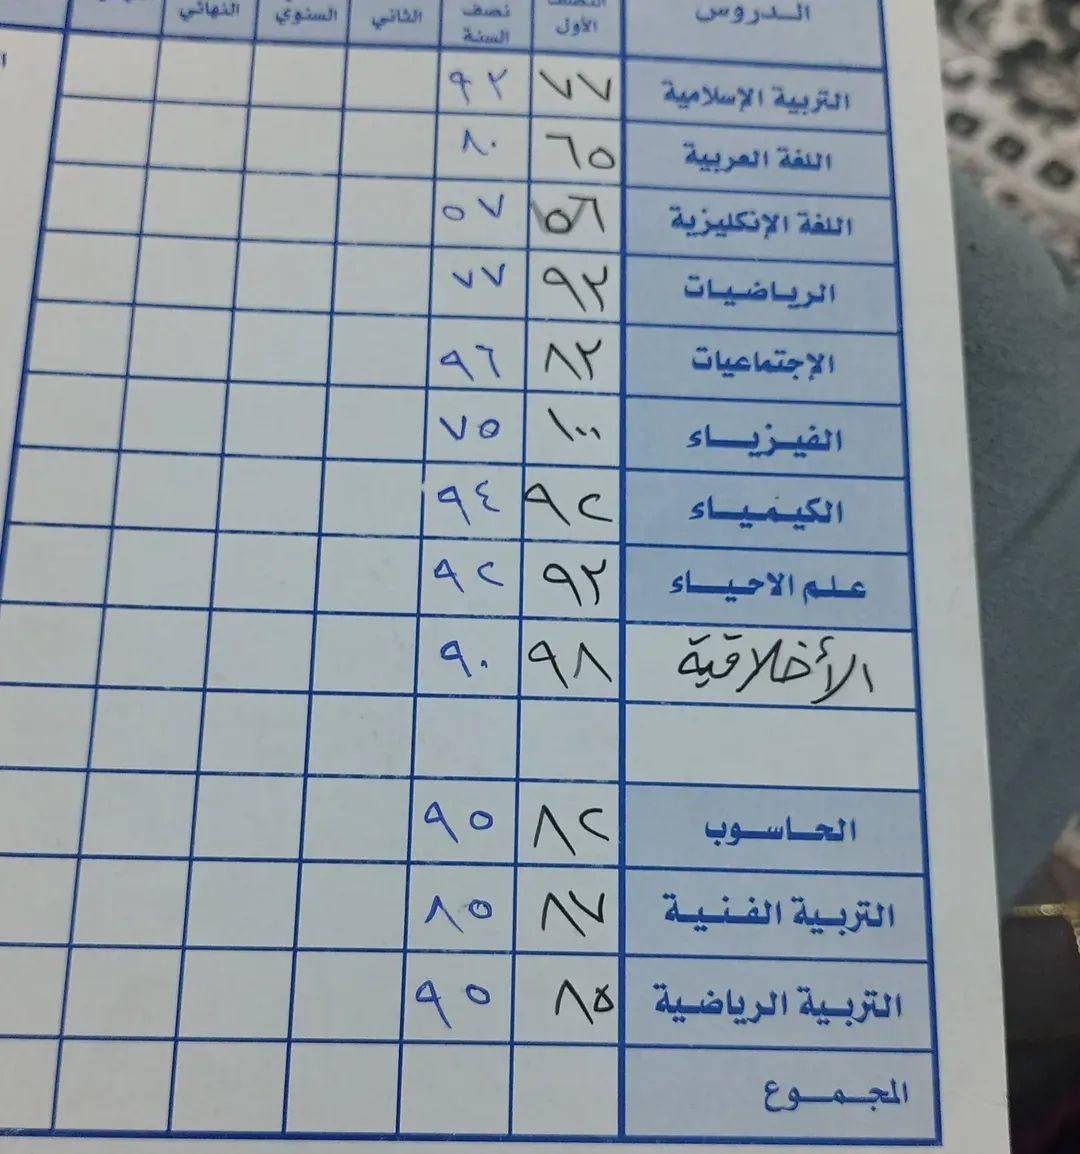 الـدروس النصف الأول نصف السنة الثاني السنوي النهائي
التربية الإسلامية ٧٧ ٩٢
اللغة العربية ٦٥ ٨٠
اللغة الإنكليزية ٥٦ ٥٧
الرياضيات ٩٢ ٧٧
الإجتماعيات ٨٢ ٩٦
الفيزياء ١٠٠ ٧٥
الكيمياء ٩٢ ٩٤
علم الاحياء ٩٢ ٩٢
الأخلاقية ٩٨ ٩٠
الحاسوب ٨٢ ٩٥
التربية الفنية ٨٧ ٨٥
التربية الرياضية ٨٥ ٩٥
المجموع